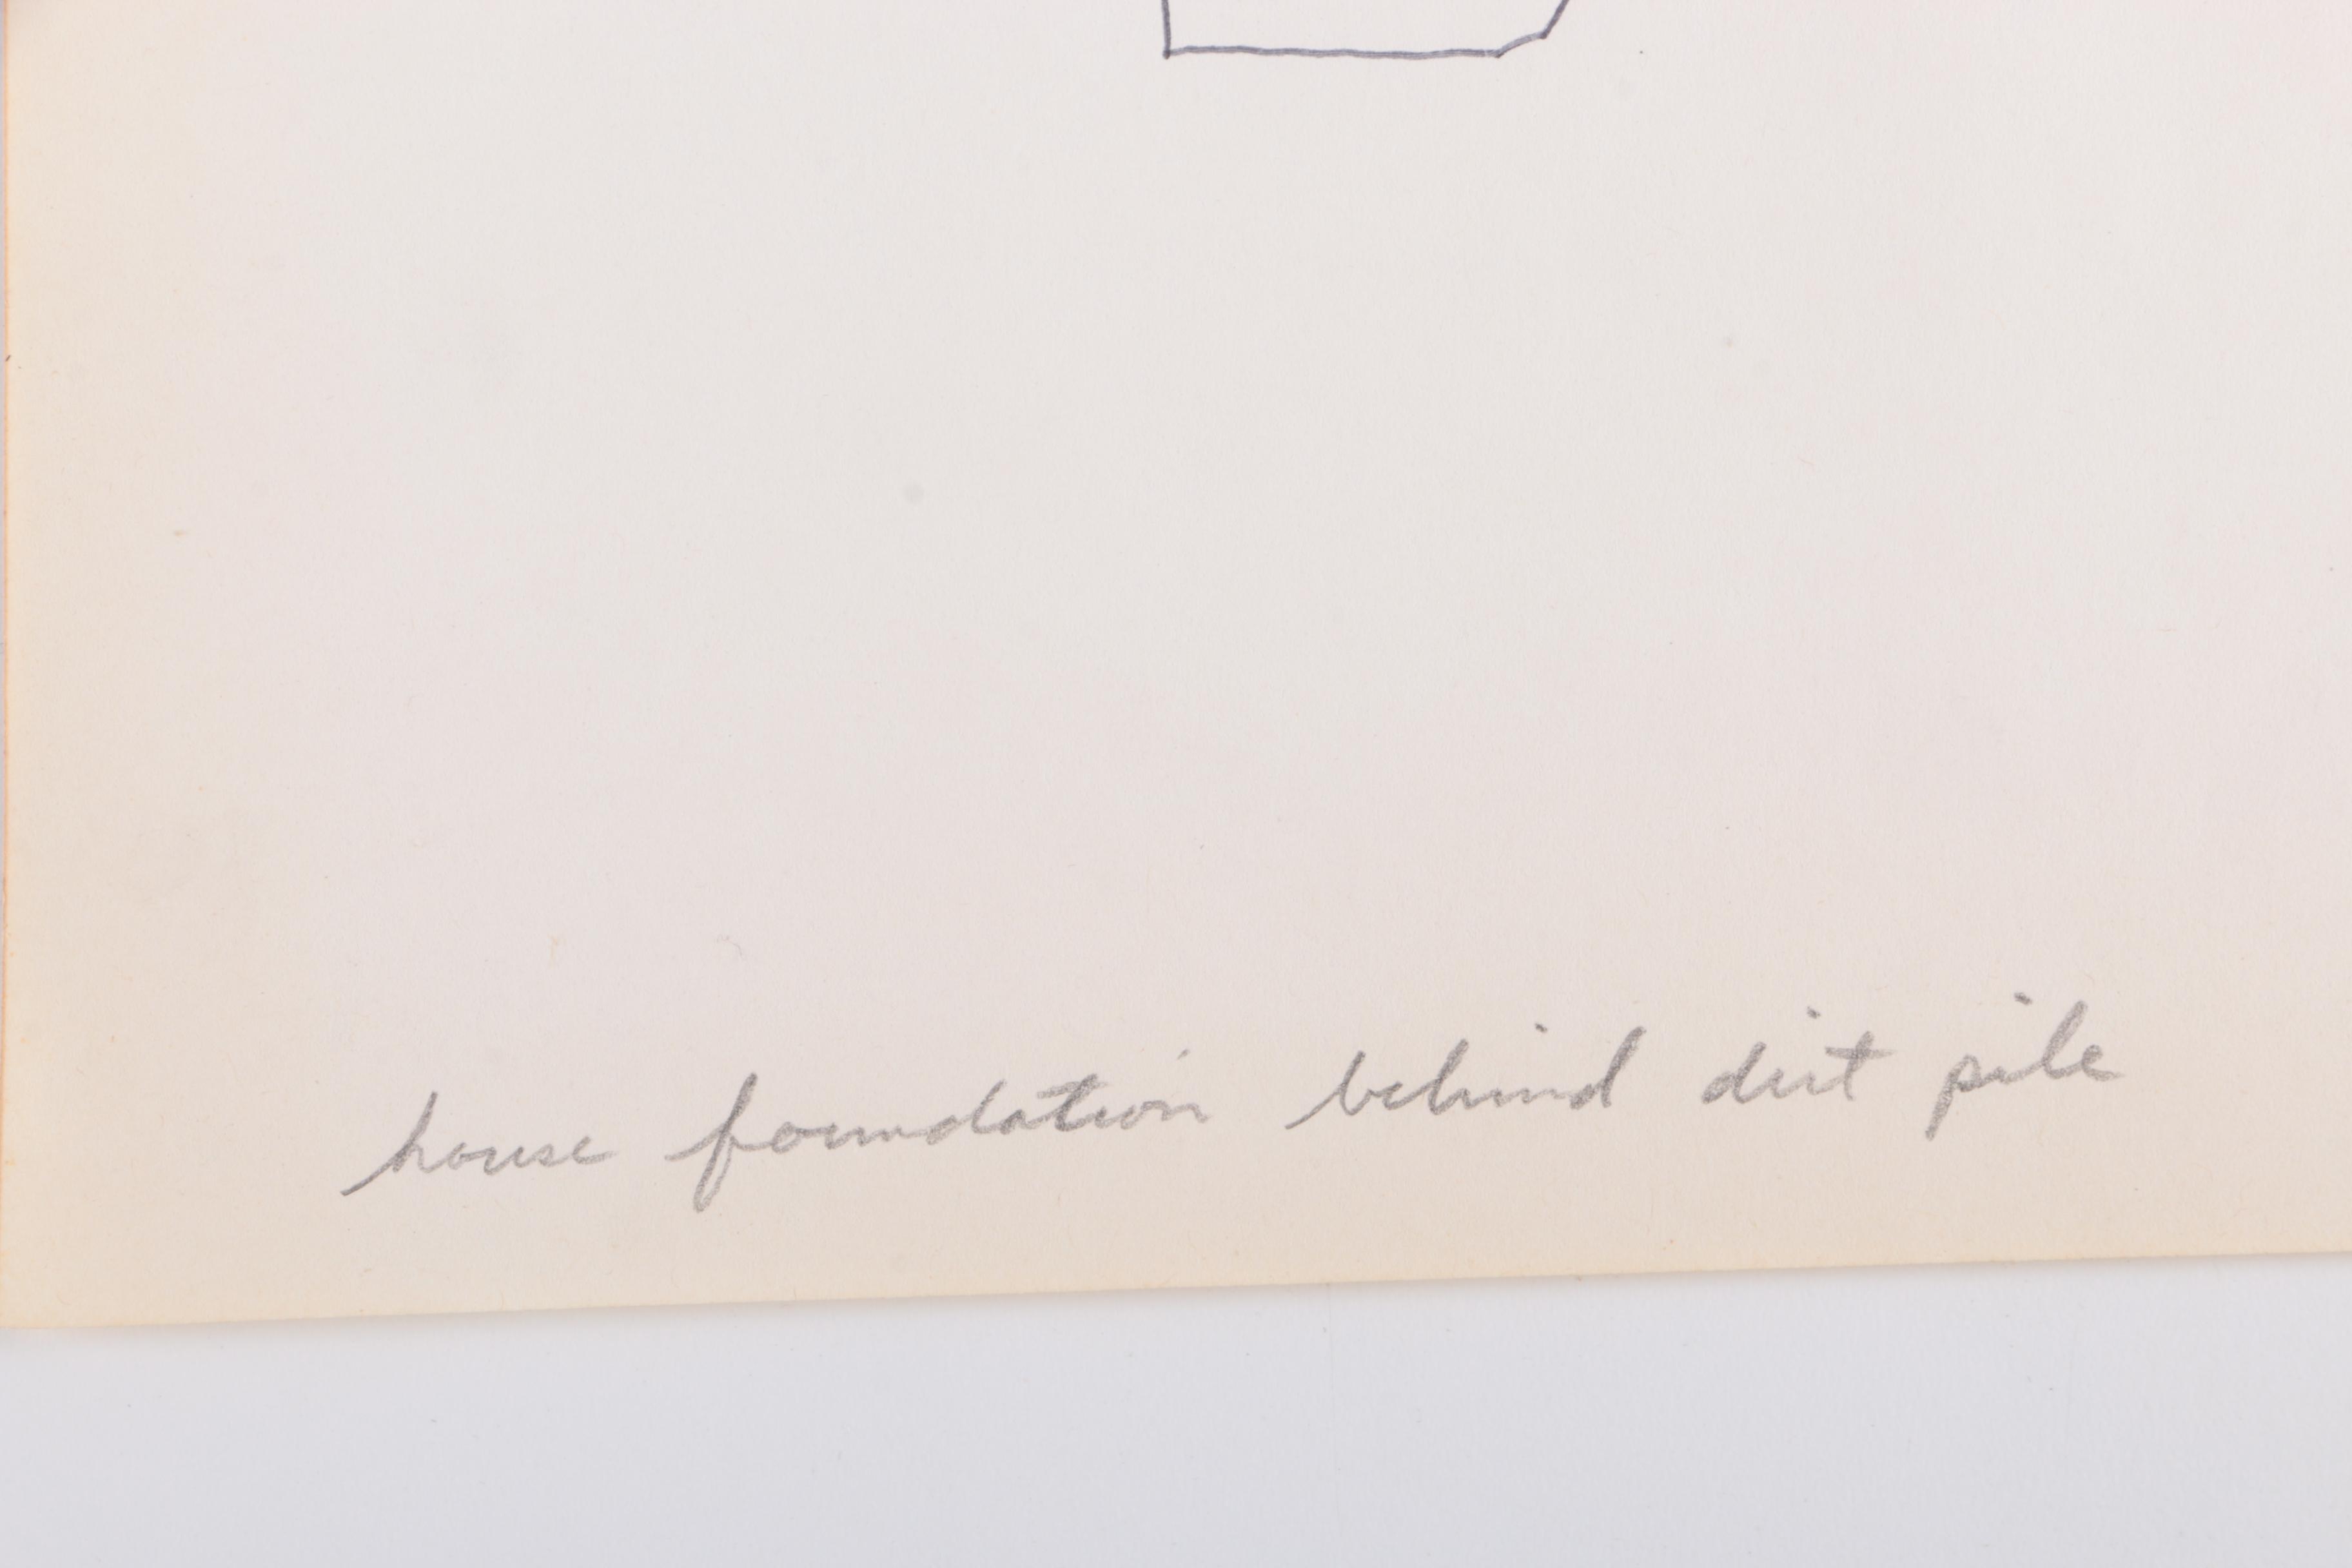 house foundation behind dirt pile